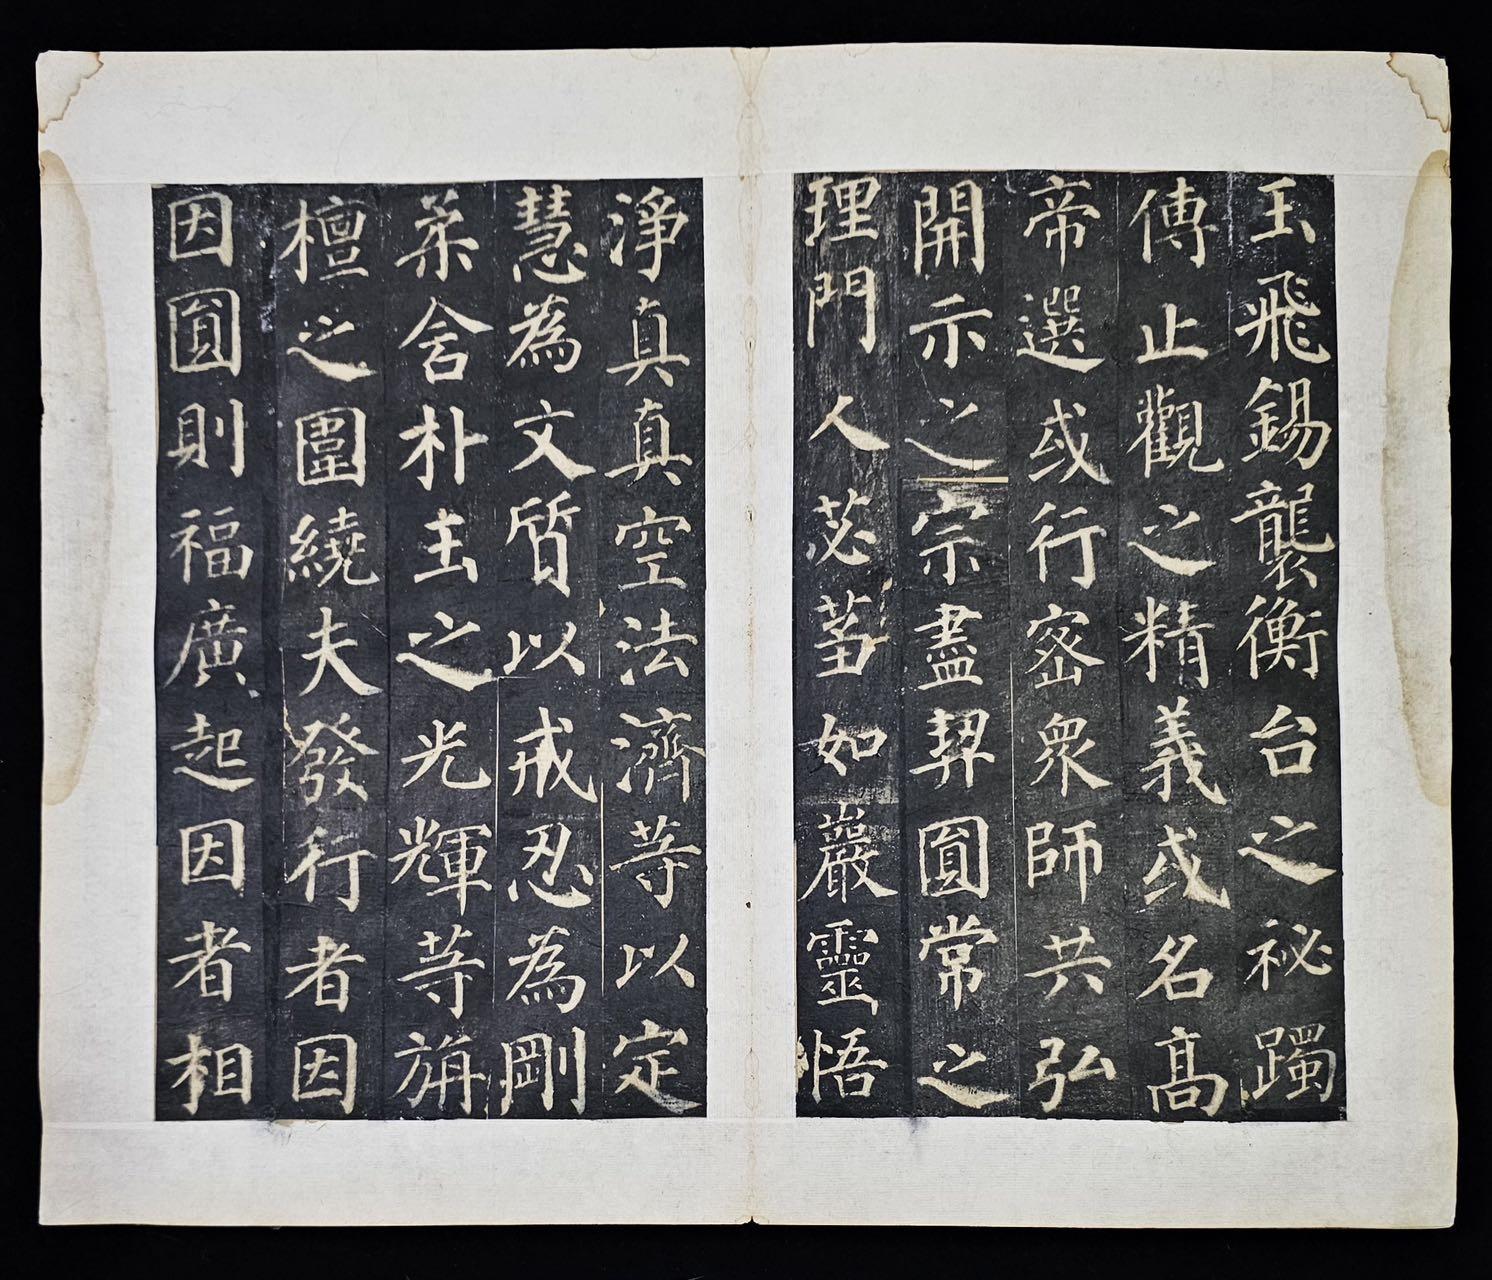 玉飛錫襲衡台之祕躅
傳止觀之精義或名高
帝選或行密衆師共弘
開示之宗盡契圓常之
理門人苾芻如巖靈悟
淨真真空法濟等以定
慧為文質以戒忍為剛
柔含朴玉之光輝等旃
檀之圍繞夫發行者因
因圓則福廣起因者相